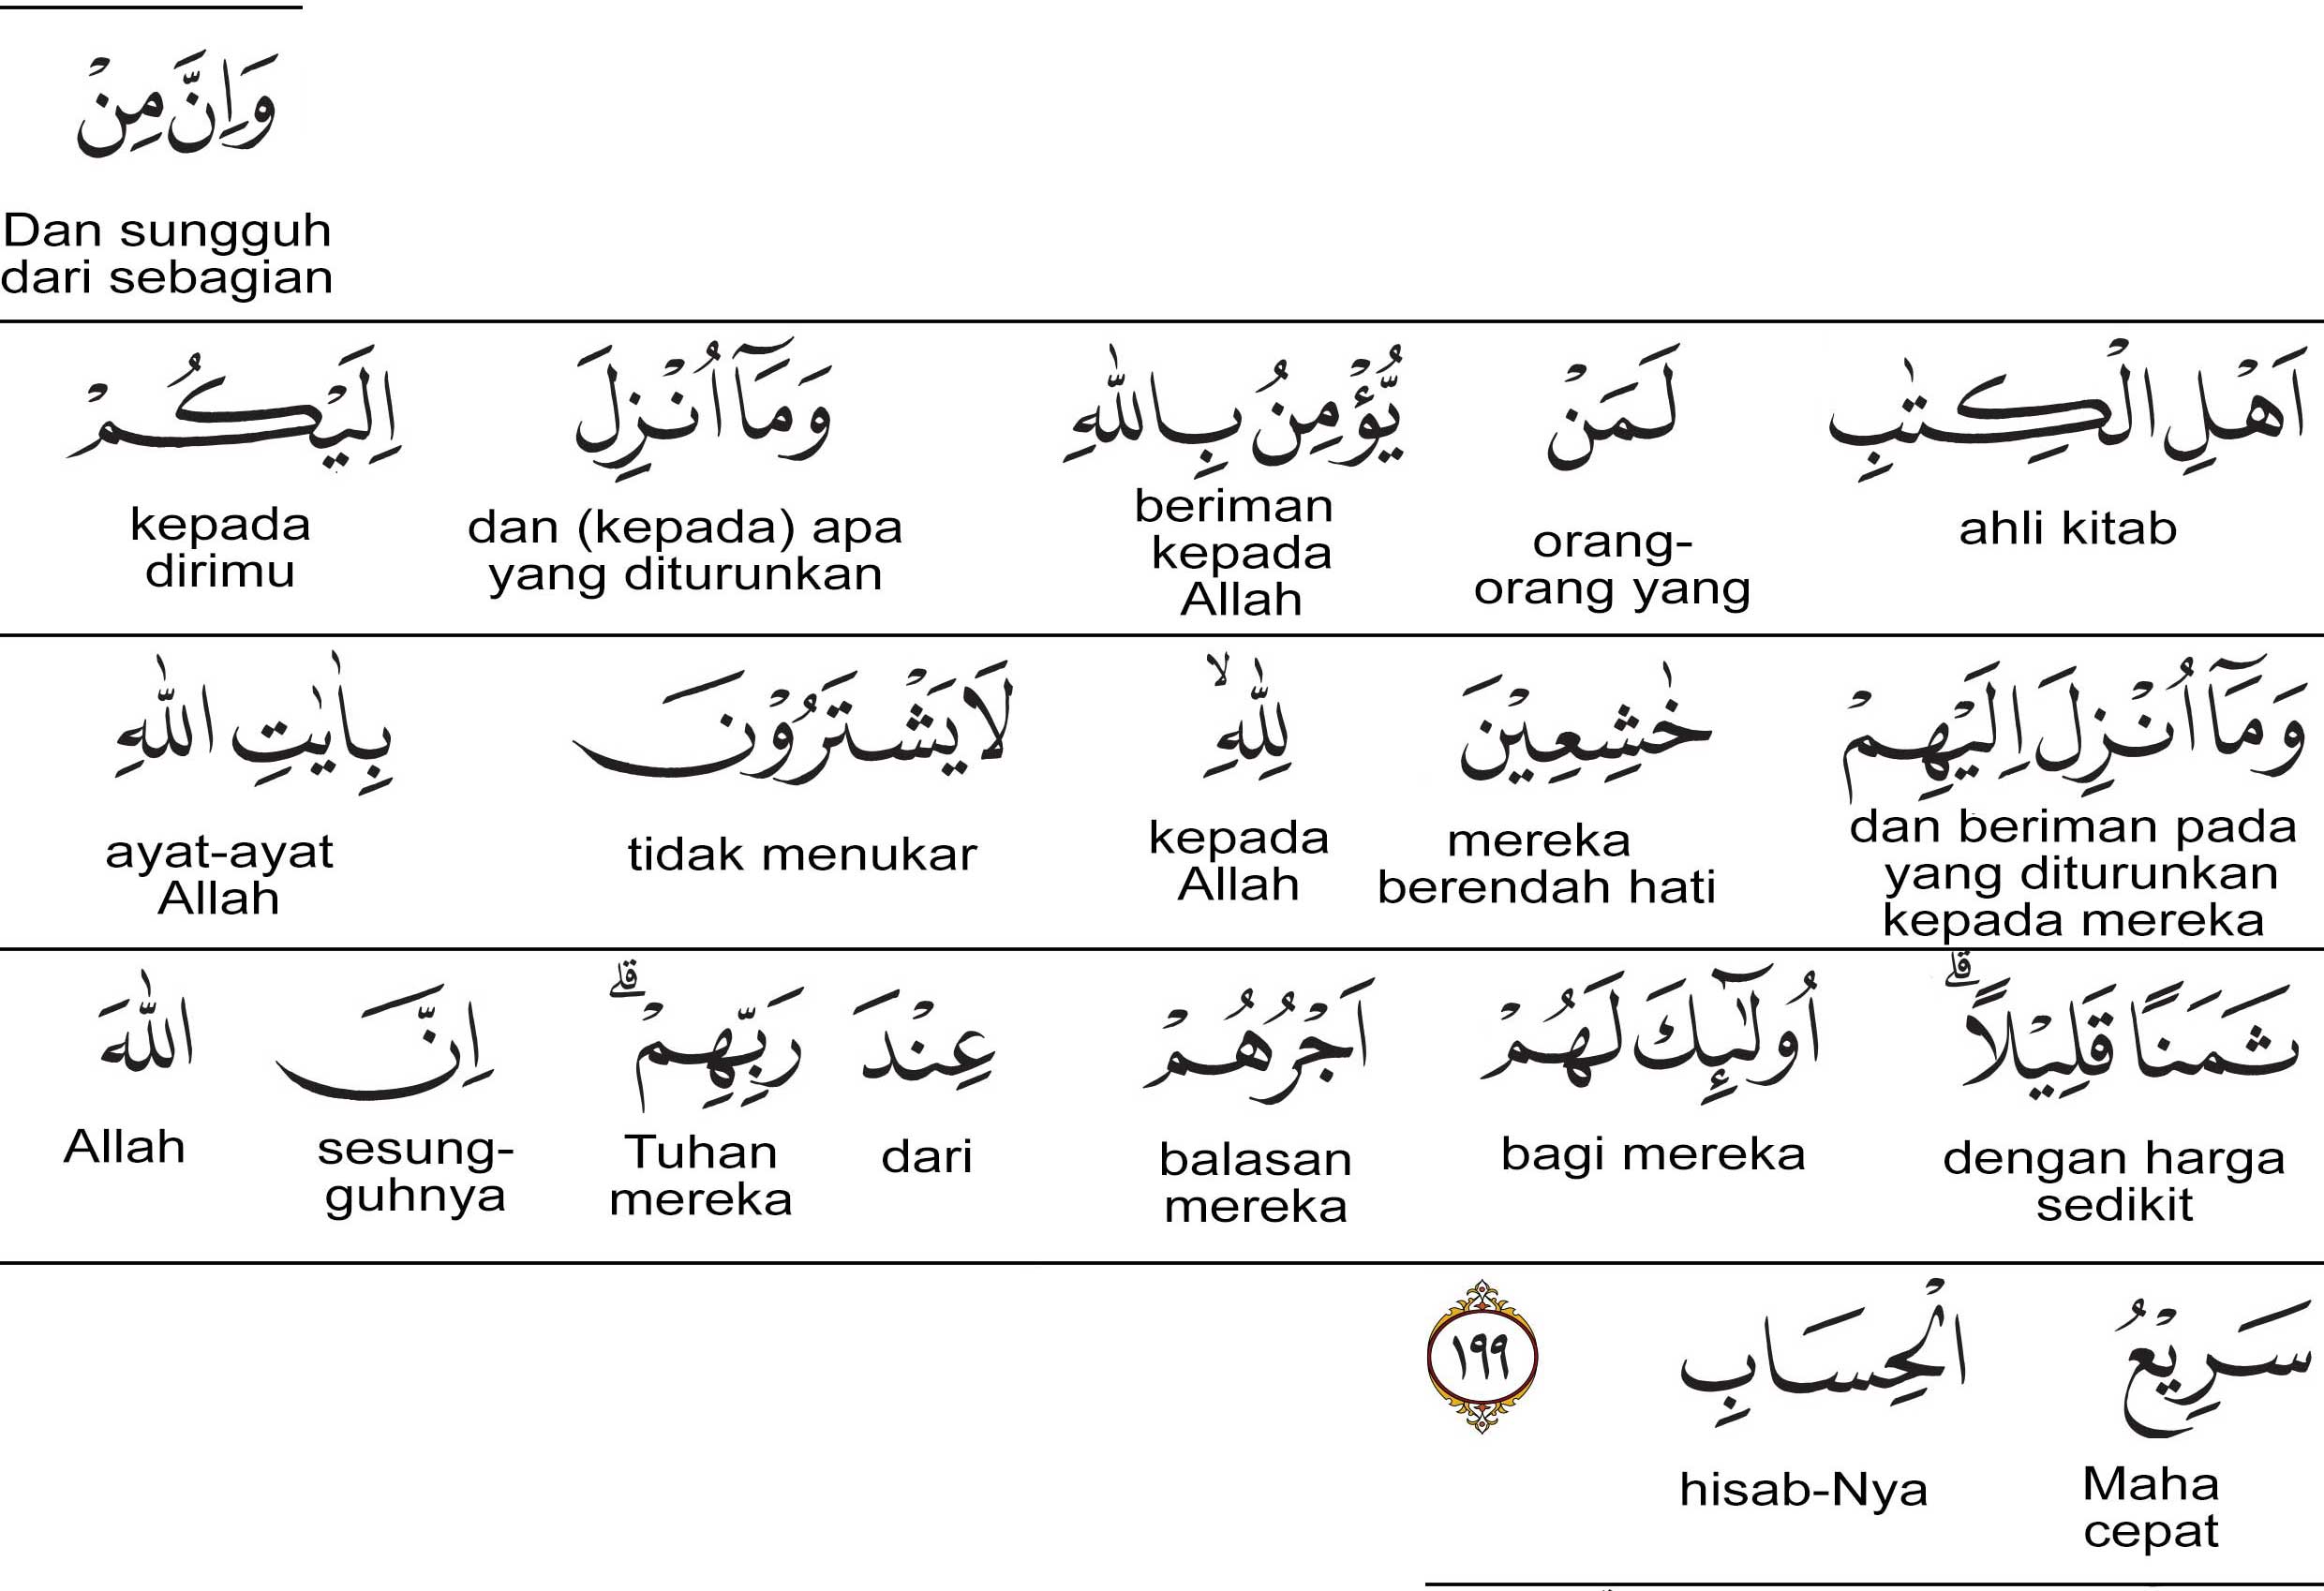 وَاِنَّ مِنْ
Dan sungguh
dari sebagian
اَهْلِ الْكِتٰبِ لَمَنْ يُّؤْمِنُ بِاللّٰهِ وَمَآ اُنْزِلَ اِلَيْكُمْ
ahli kitab
orang-
orang yang
beriman
kepada
Allah
dan (kepada) apa
yang diturunkan
kepada
dirimu
وَمَآ اُنْزِلَ اِلَيْهِمْ خٰشِعِيْنَ لِلّٰهِ ۙ لَا يَشْتَرُوْنَ بِاٰيٰتِ اللّٰهِ
dan beriman pada
yang diturunkan
kepada mereka
mereka
berendah hati
kepada
Allah
tidak menukar
ayat-ayat
Allah
ثَمَنًا قَلِيْلًا ۗ اُولٰۤىِٕكَ لَهُمْ اَجْرُهُمْ عِنْدَ رَبِّهِمْ ۗ اِنَّ اللّٰهَ
dengan harga
sedikit
bagi mereka
balasan
mereka
dari
Tuhan
mereka
sesung-
guhnya
Allah
سَرِيْعُ الْحِسَابِ ١٩٩
Maha
cepat
hisab-Nya